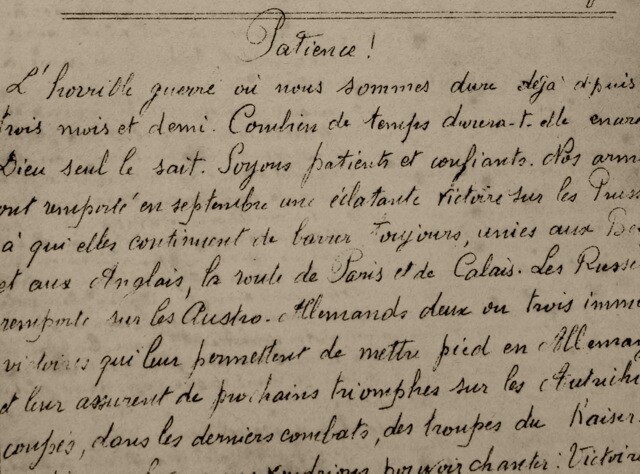 Patience!
L'horrible guerre où nous sommes dure déjà depuis
trois mois et demi. Combien de temps durera-t-elle encore
Dieu seul le sait. Soyons patients et confiants. Nos arm
ont remporté en septembre une éclatante victoire sur les Pruss
à qui elles continuent de barrer toujours, unies aux Be
et aux Anglais, la route de Paris et de Calais. Les Russe
remporté sur les Austro-Allemands deux ou trois imme
victoires qui leur permettent de mettre pied en Alleman
et leur assurent de prochains triomphes sur les Autrichi
coupés, dans les derniers combats, des troupes du Kaiser.
voudrions pouvoir chanter: Victoire